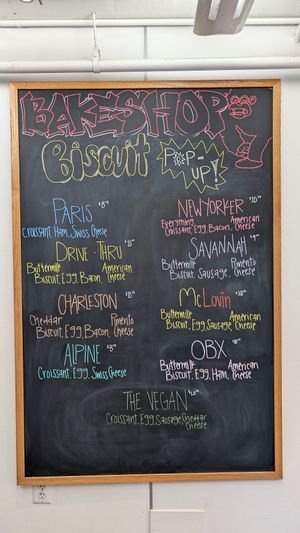 BAKESHOP
Biscuit POP-UP!
PARIS $8
Croissant, Ham, Swiss Cheese
DRINE-THRU $10
Buttermilk American
Biscuit, Egg, Bacon, Cheese
CHARLESTON $10
Cheddar Pimento
Biscuit, Egg, Bacon, Cheese
ALPINE $8
Croissant, Egg, Swiss Cheese
NEW YORKER $10
Everything American
Croissant, Egg, Bacon, Cheese
SAVANNAH $9
Buttermilk Pimento
Biscuit, Sausage, Cheese
McLovin $10
Buttermilk American
Biscuit, Egg, Sausage, Cheese
OBX $8
Buttermilk American
Biscuit, Egg, Ham, Cheese
THE VEGAN
Croissant, Egg, Sausage, Cheddar
Cheese